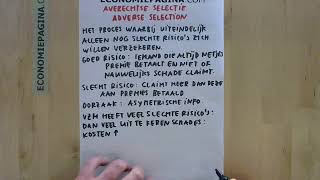 ECONOMIEPAGINA.COM
AVERECHTSE SELECTIE
ADVERSE SELECTION
HET PROCES WAARBIJ UITEINDELIJK
ALLEEN NOG SLECHTE RISICO'S ZICH
WILLEN VERZEKEREN.
GOED RISICO: IEMAND DIE ALTIJD NETJES
PREMIE BETAALT EN NIET OF
NAUWELIJKS SCHADE CLAIMT.
SLECHT RISICO: CLAIMT MEER DAN DEZE
AAN PREMIES BETAALD
OORZAAK: ASYMETRISCHE INFO
VZM HEEFT VEEL SLECHTE RISICO'S:
DAN VEEL UIT TE KEREN SCHADES:
KOSTEN ↑
ECONOMIEPAGINA.COM